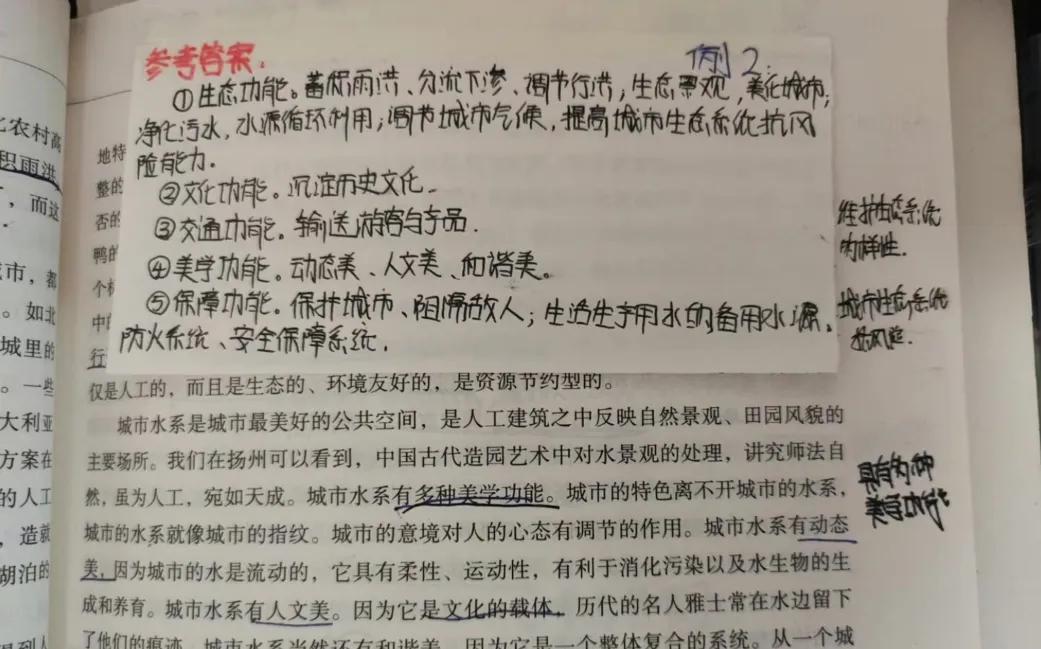 参考答案:
例2.
①生态功能。蓄保雨洪、分流下渗、调节行洪；生态景观，美化城市；
净化污水，水源循环利用；调节城市气候，提高城市生态系统抗风
险能力.
②文化功能。沉淀历史文化.
③交通功能。输送游客与产品.
④美学功能。动态美、人文美、和谐美。
⑤保障功能。保护城市、阻隔敌人；生活生产用水的备用水源.
防火系统、安全保障系统.
化农村高
积雨洪
，而这
市，都
。如北
城里的
。一些
大利亚
方案在
的人工
，造就
胡泊的
地特
整的
否的
鸭的
个
中的
行
仅是人工的，而且是生态的、环境友好的，是资源节约型的。
城市水系是城市最美好的公共空间，是人工建筑之中反映自然景观、田园风貌的
主要场所。我们在扬州可以看到，中国古代造园艺术中对水景观的处理，讲究师法自
然，虽为人工，宛如天成。城市水系有多种美学功能。城市的特色离不开城市的水系，
城市的水系就像城市的指纹。城市的意境对人的心态有调节的作用。城市水系有动态
美，因为城市的水是流动的，它具有柔性、运动性，有利于消化污染以及水生物的生
成和养育。城市水系有人文美。因为它是文化的载体。历代的名人雅士常在水边留下
了他们的痕迹。城市水系当然还有和谐美，因为它是一个整体复合的系统。从一个城
维护生态系统
多样性.
城市生态系统
抗风险.
具有多种
美学功能